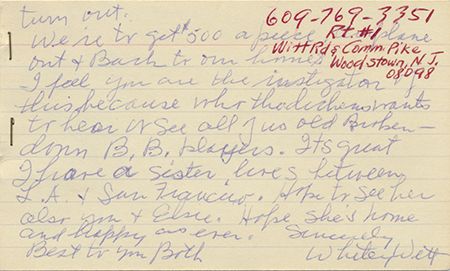 turn out.
We're to get $500 a piece plane
out & Back to our homes
I feel you are the instigator of
this, because who the dickens wants
to hear or see all of us old Broken-
down B.B. players. Its great
I have a sister lives between
L.A. & San Francisco. Hope to see her
also you & Elsie. Hope she's home
and happy as ever. Sincerely
Best to You Both Whitey Witt
609-769-3351
Rt. #1
Witt Rd & Comm. Pike
Woodstown, N.J.
08098